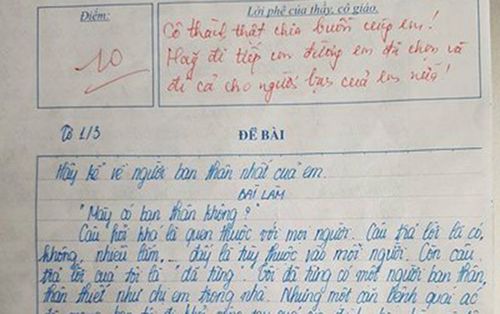 Điểm:
10
Lời phê của thầy, cô giáo.
Cô thành thật chia buồn cùng em!
Hãy đi tiếp con đường em đã chọn và
đi cả cho người bạn của em nữa!
Tổ 1/3
ĐỀ BÀI
Hãy kể về người bạn thân nhất của em.
BÀI LÀM
"Mày có bạn thân không?"
Câu hỏi khá là quen thuộc với mọi người. Câu trả lời là có,
không, nhiều lắm,... đấy là tùy thuộc vào mỗi người. Còn câu
trả lời của tôi là "đã từng". Tôi đã từng có một người bạn thân,
thân thiết như chị em trong nhà. Nhưng một căn bệnh quái ác